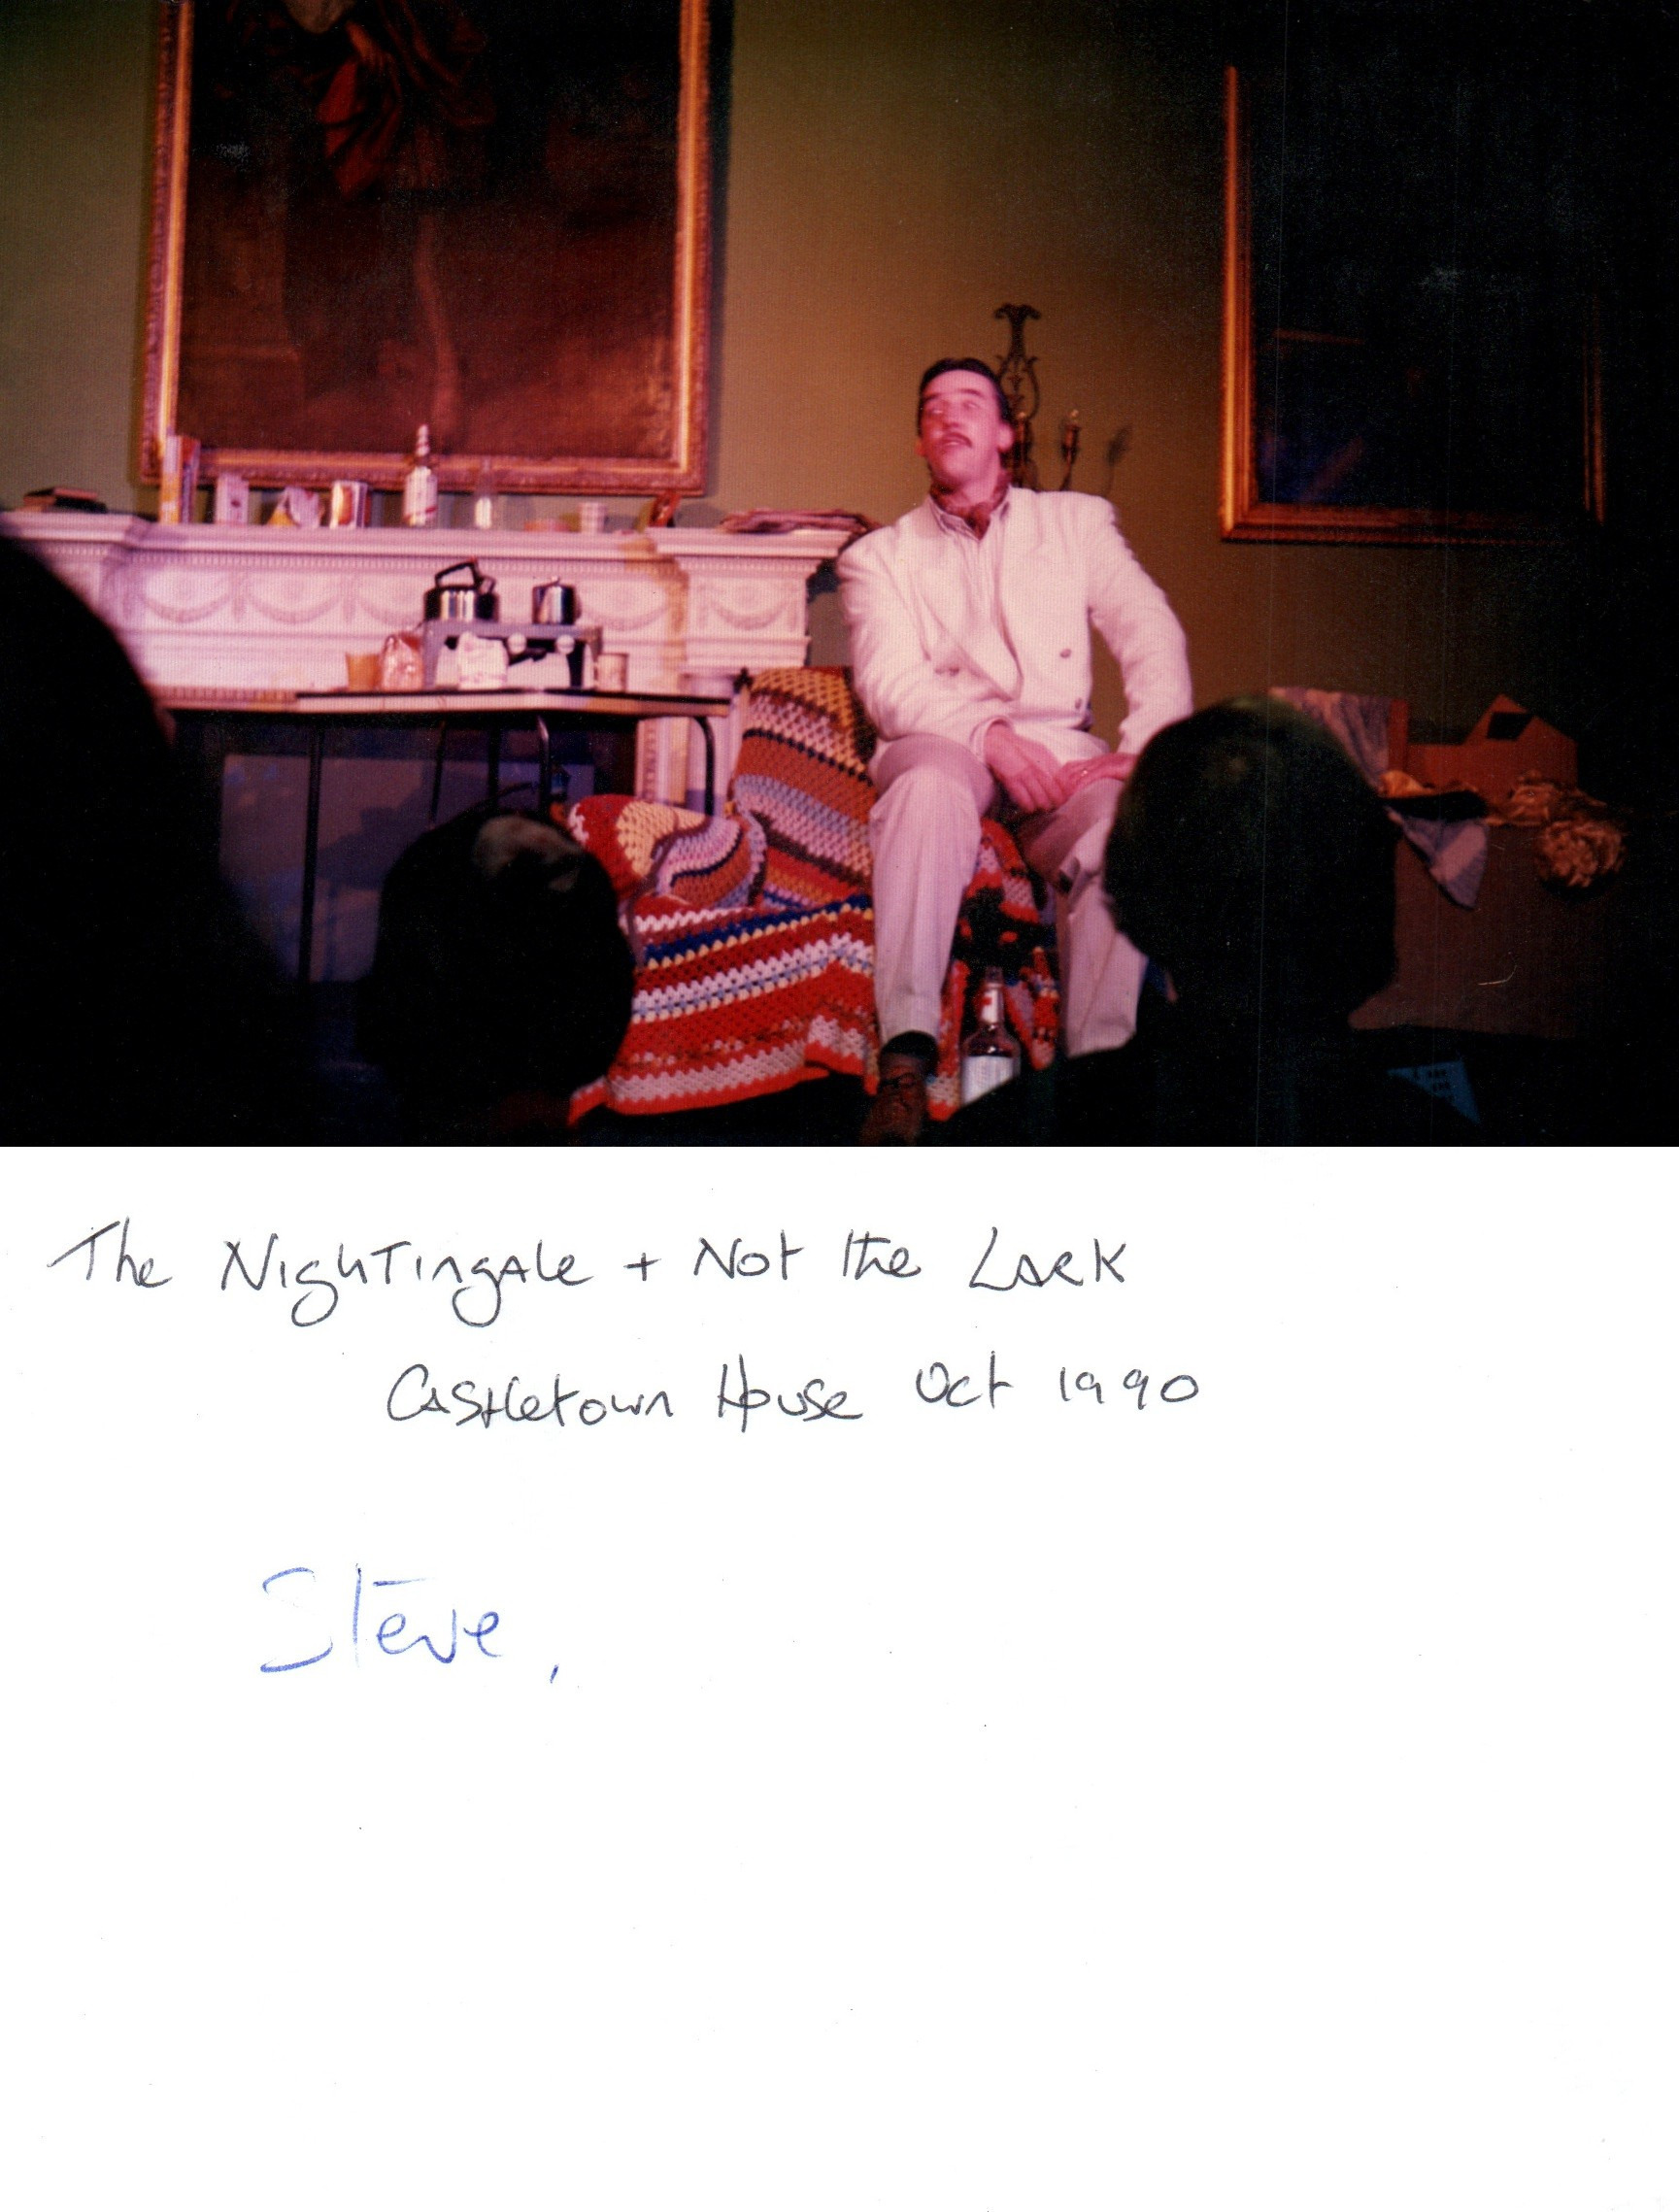 The Nightingale + Not the Lark
Castletown House Oct 1990
Steve,